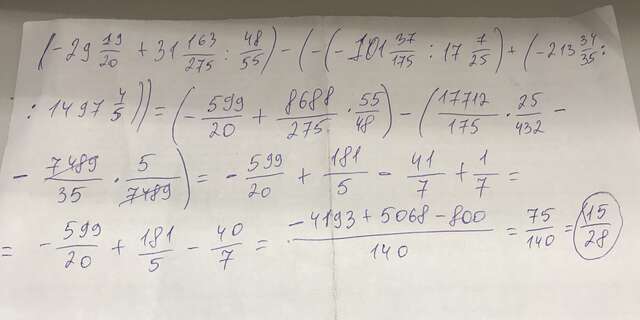 (-29 19/20 + 31 163/275 : 48/55) - (-(-101 37/175 : 17 7/25) + (-213 34/35 :
: 1497 4/5)) = (- 599/20 + 8688/275 · 55/48) - (17712/175 · 25/432 -
- 7489/35 · 5/7489) = - 599/20 + 181/5 - 41/7 + 1/7 =
= - 599/20 + 181/5 - 40/7 = (-4193 + 5068 - 800)/140 = 75/140 = 15/28